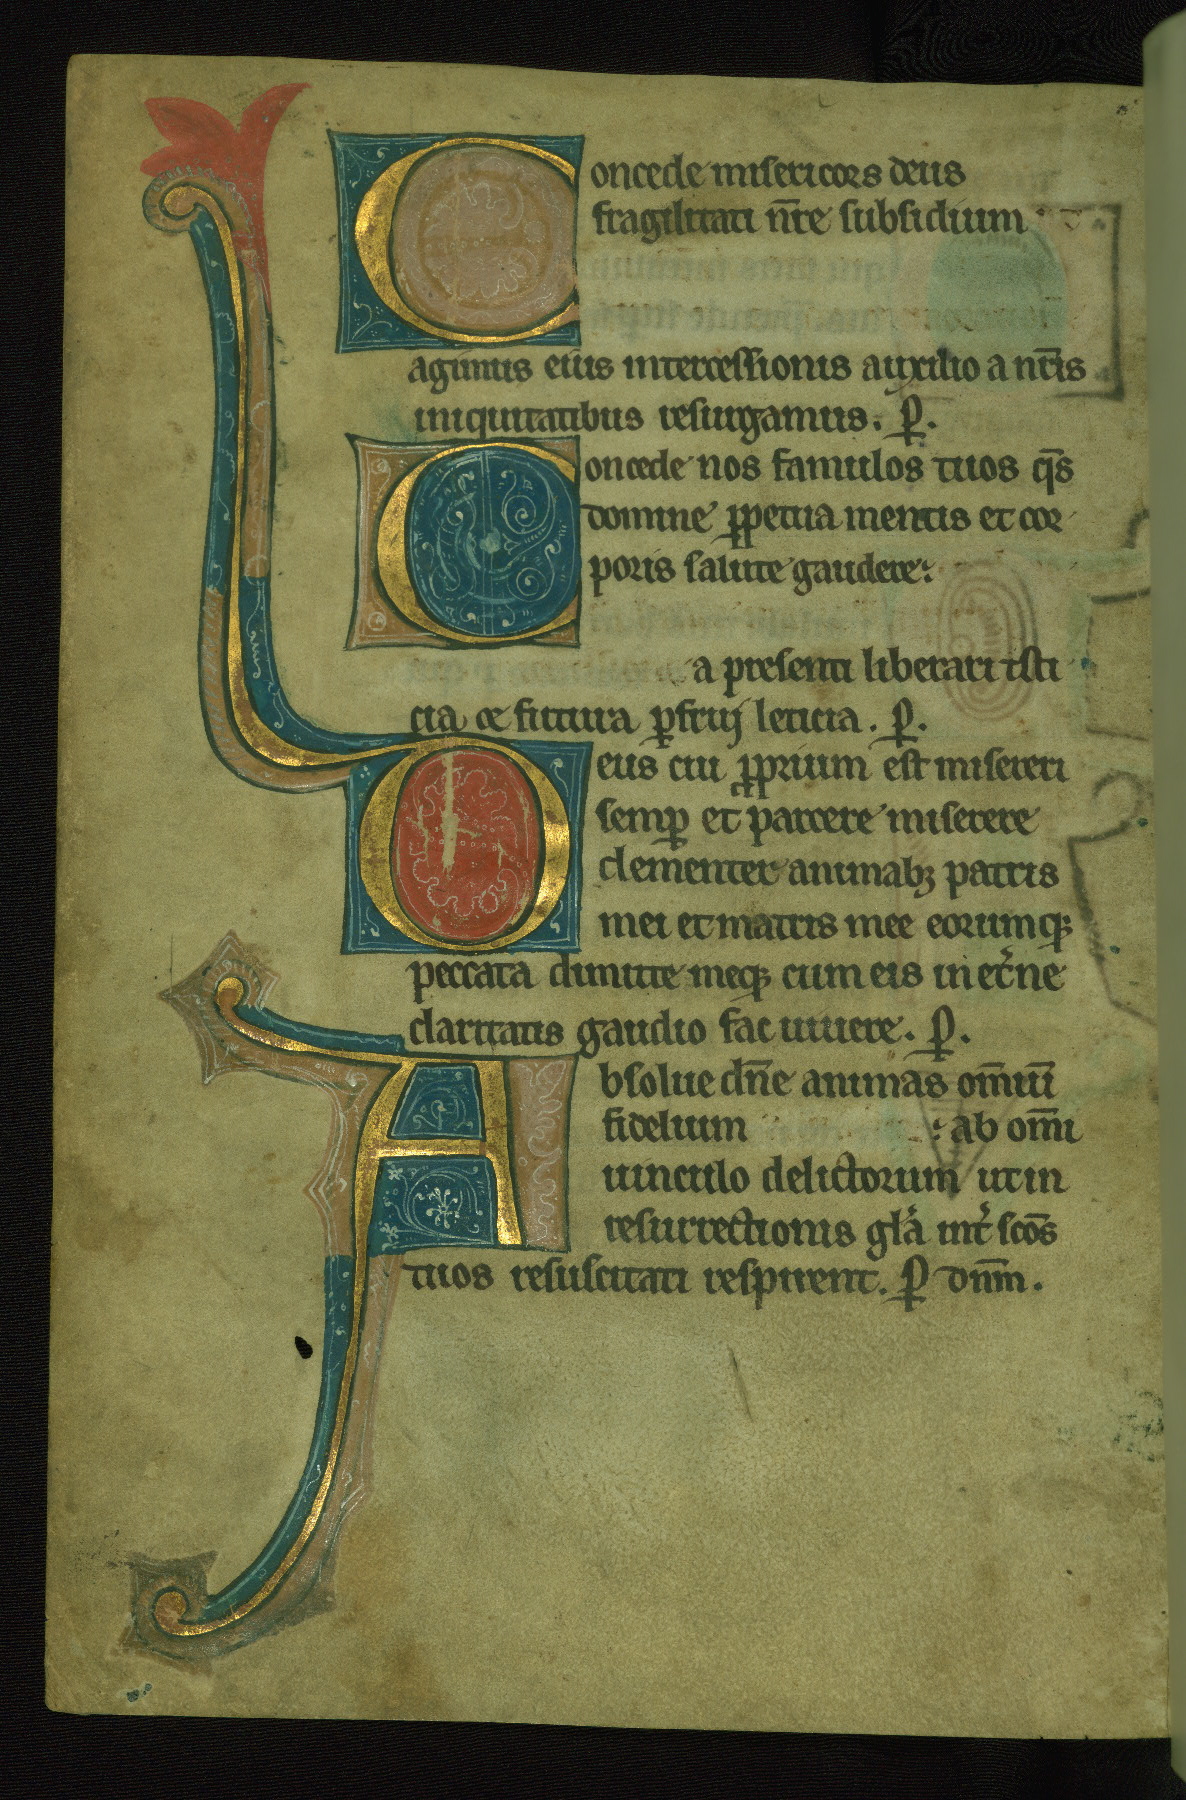 Concede misericors deus
fragilitati nr̄e subsidium
agimus eius intercessionis auxilio a nr̄is
iniquitatibus resurgamus. P̱.
Concede nos famulos tuos q̄s
domine ꝑpetua mentis et cor
poris salute gaudere:
a presenti liberari tristi
cia et futura ꝑfrui leticia. P̱.
Deus cui ꝓprium est misereri
semꝑ et parcere miserere
clementer animabꝫ patris
mei et matris mee eorumqꝫ
peccata dimitte meqꝫ cum eis in et̾ne
claritatis gaudio fac uiuere. P̱.
Absolue dn̄e animas om̄iū
fidelium : ab om̄i
uinculo delictorum ut in
resurrectionis gl̾a int̾ sc̄os
tuos resuscitati respirent. P̱ dn̄m.